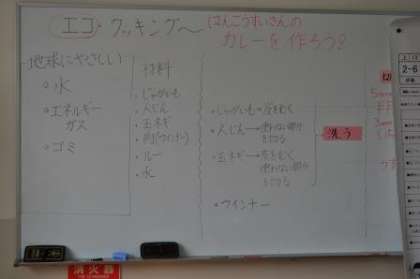 エコ・クッキング～
カレーを作ろう?
地球にやさしい
・水
・エネルギー
ガス
・ゴミ
材料
・じゃがいも
・人じん
・玉ネギ
・肉(ウインナー)
・ルー
・水
・じゃがいも→皮をむく
・人じん→使わない部分
をとる
・玉ネギ→皮をむく
使わない部分
をとる
洗う
・ウインナー
2-6
消火器